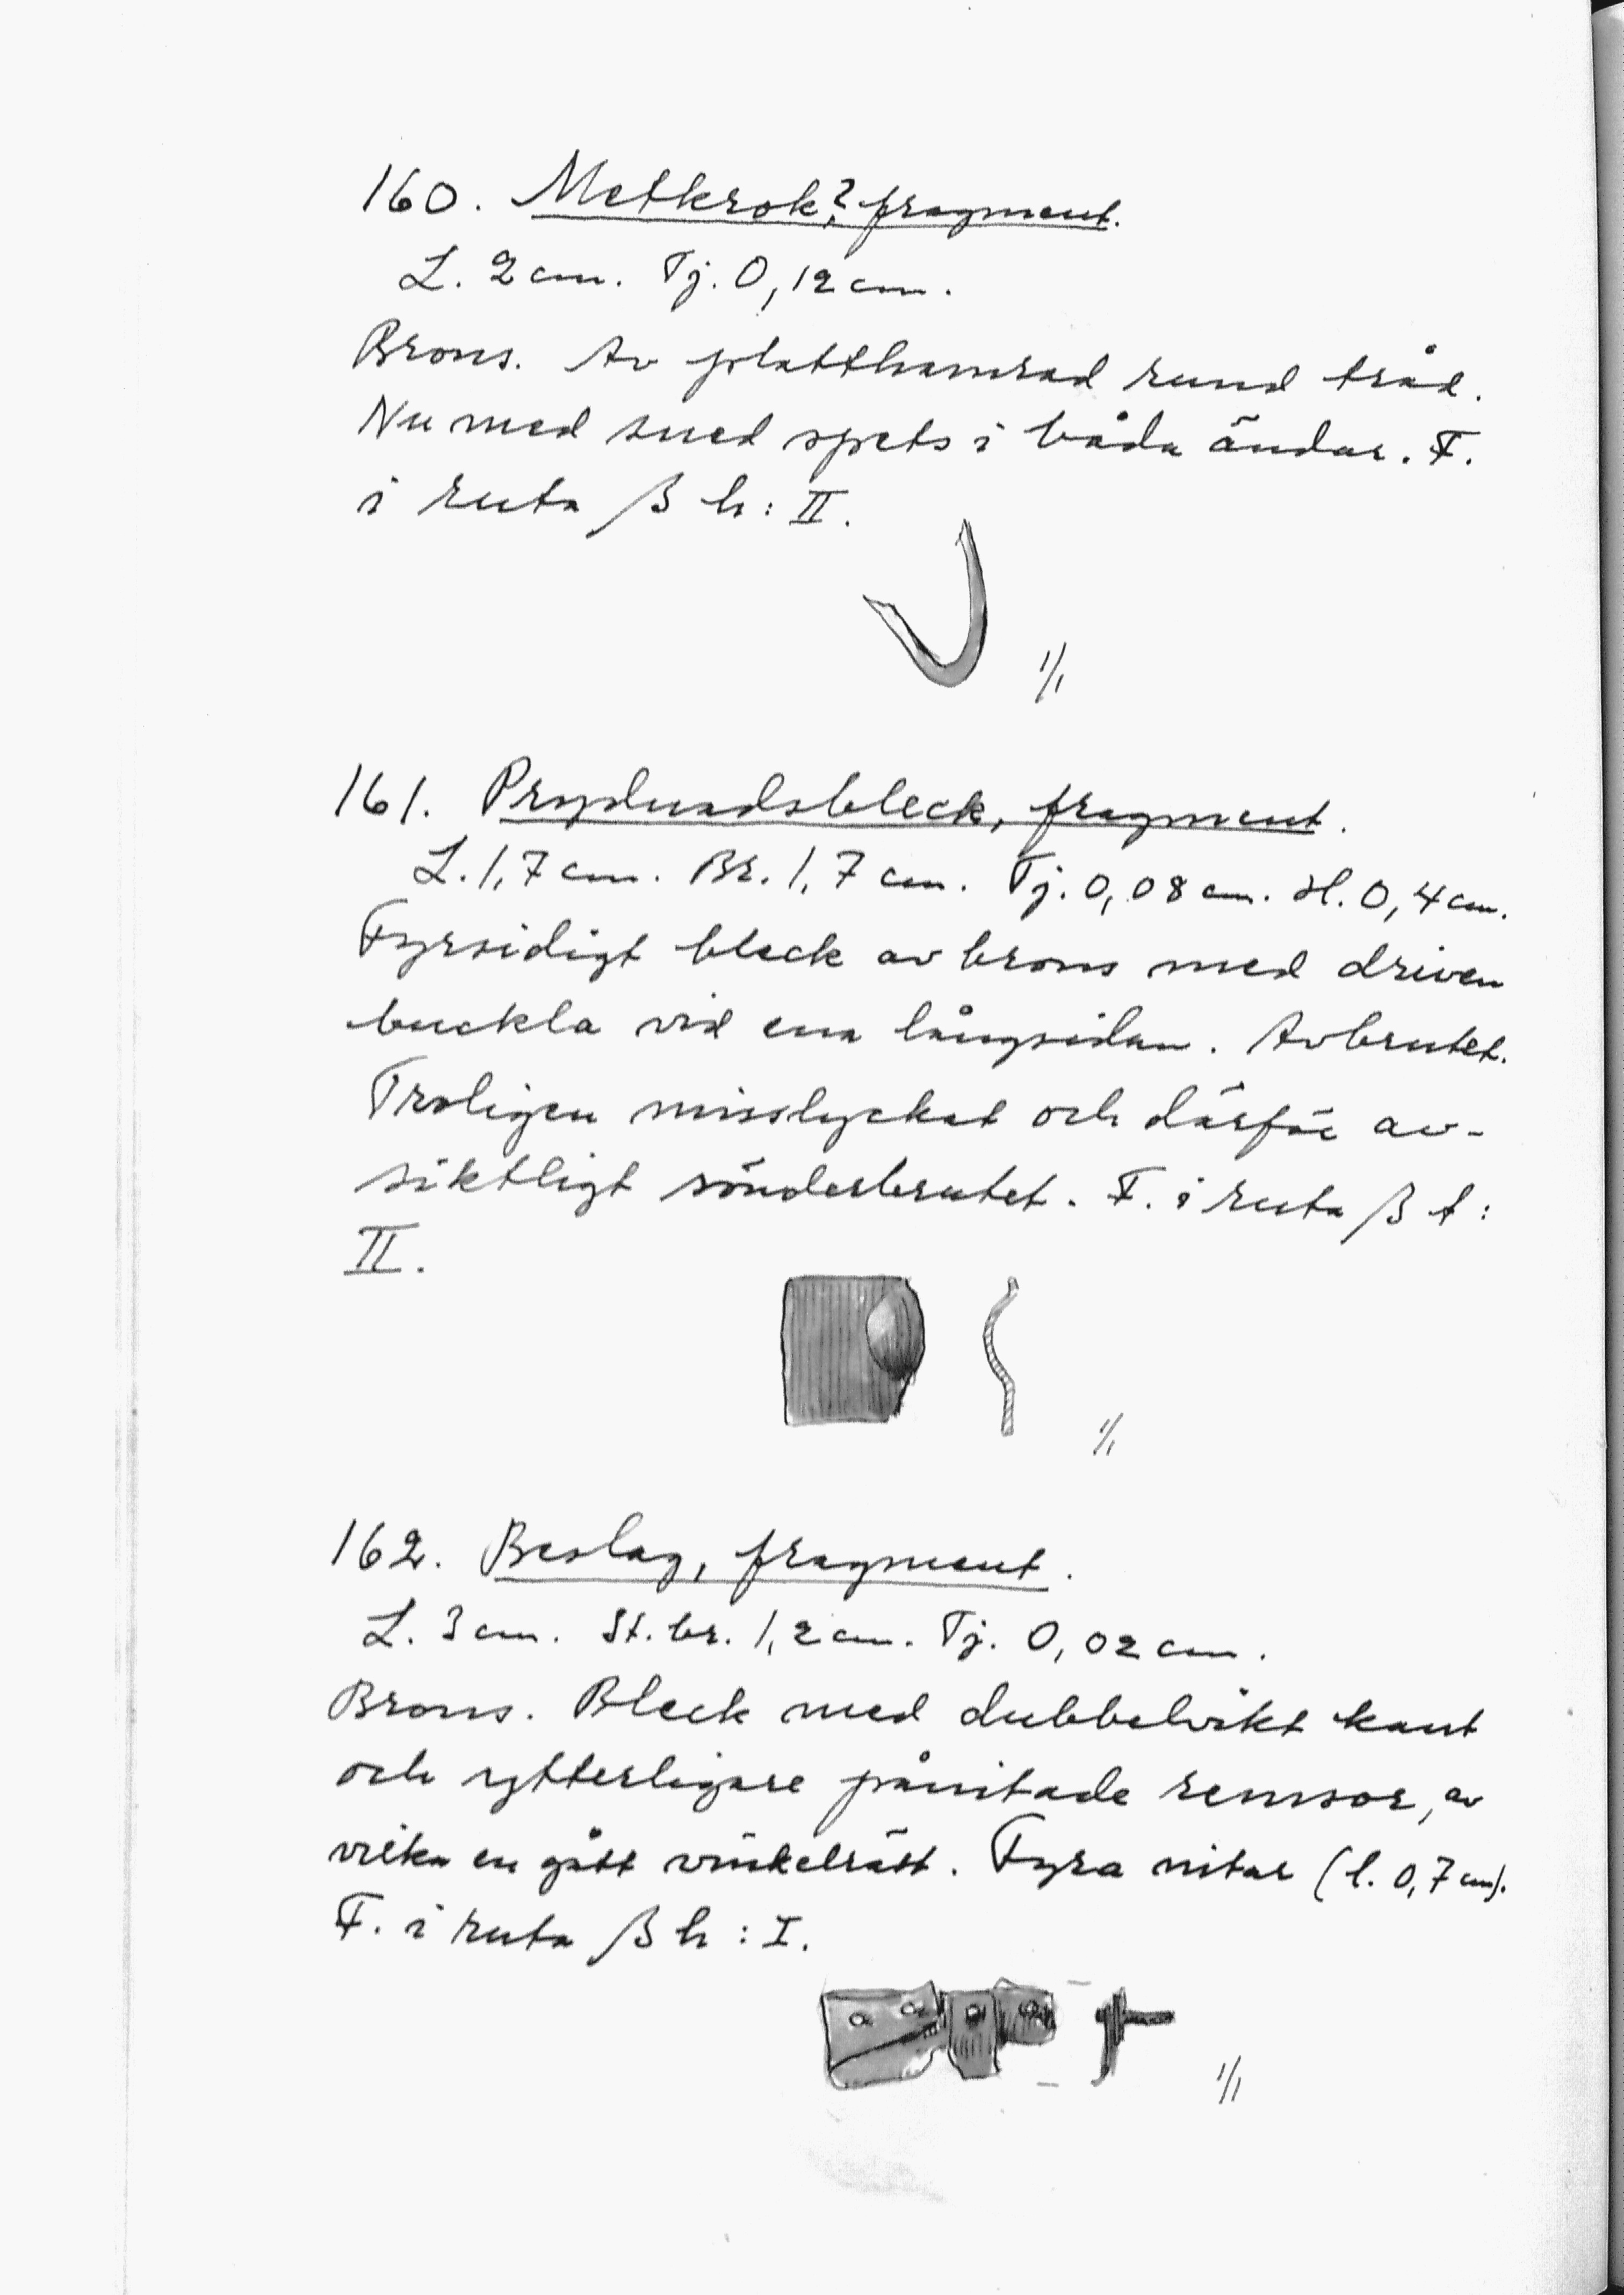 160. Metkrok? fragment.
L. 2 cm. Tj. 0,12 cm.
Brons. Av platthamrad rund tråd.
Nu med sned spets i båda ändar. F.
i ruta β h: II.
1/1
161. Prydnadsbleck, fragment.
L. 1,7 cm. Br. 1,7 cm. Tj. 0,08 cm. H. 0,4 cm.
Fyrsidigt bleck av brons med driven
buckla vid ena långsidan. Avbrutet.
Troligen misslyckat och därför av-
siktligt sönderbrutet. F. i ruta β t:
II.
1/1
162. Beslag, fragment.
L. 3 cm. St. br. 1,2 cm. Tj. 0,02 cm.
Brons. Bleck med dubbelvikt kant
och ytterligare pånitade remsor, av
vilka en gått vinkelrätt. Fyra nitar (l. 0,7 cm).
F. i ruta β h: I.
1/1